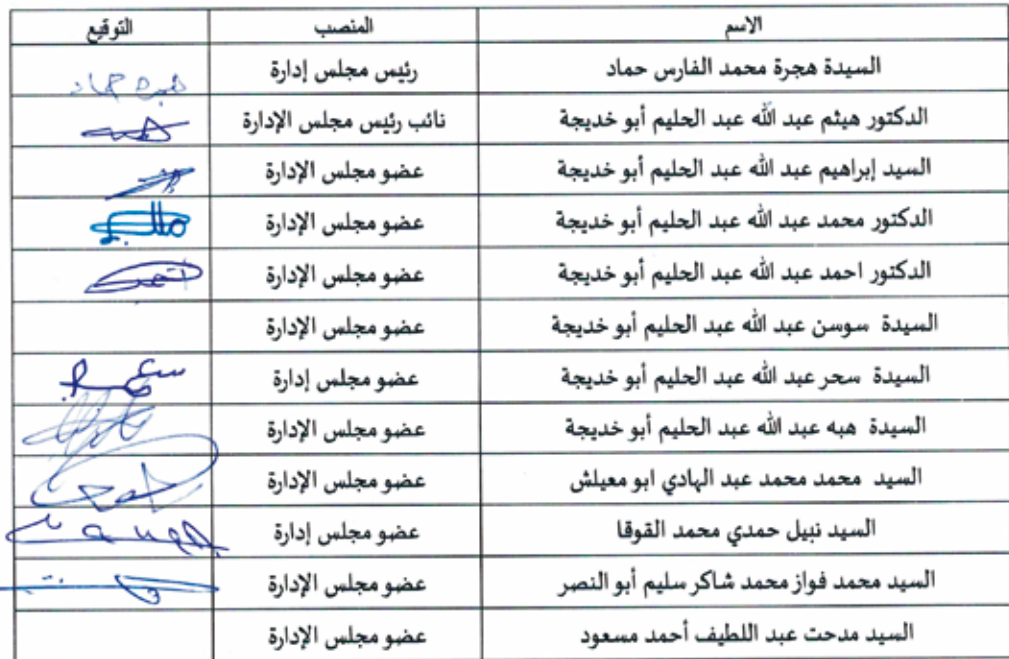 الاسم المنصب التوقيع
السيدة هجرة محمد الفارس حماد رئيس مجلس إدارة
الدكتور هيثم عبد الله عبد الحليم أبو خديجة نائب رئيس مجلس الإدارة
السيد إبراهيم عبد الله عبد الحليم أبو خديجة عضو مجلس الإدارة
الدكتور محمد عبد الله عبد الحليم أبو خديجة عضو مجلس الإدارة
الدكتور احمد عبد الله عبد الحليم أبو خديجة عضو مجلس الإدارة
السيدة سوسن عبد الله عبد الحليم أبو خديجة عضو مجلس الإدارة
السيدة سحر عبد الله عبد الحليم أبو خديجة عضو مجلس إدارة
السيدة هبه عبد الله عبد الحليم أبو خديجة عضو مجلس الإدارة
السيد محمد محمد عبد الهادي ابو معيلش عضو مجلس الإدارة
السيد نبيل حمدي محمد القوقا عضو مجلس إدارة
السيد محمد فواز محمد شاكر سليم أبو النصر عضو مجلس الإدارة
السيد مدحت عبد اللطيف أحمد مسعود عضو مجلس الإدارة